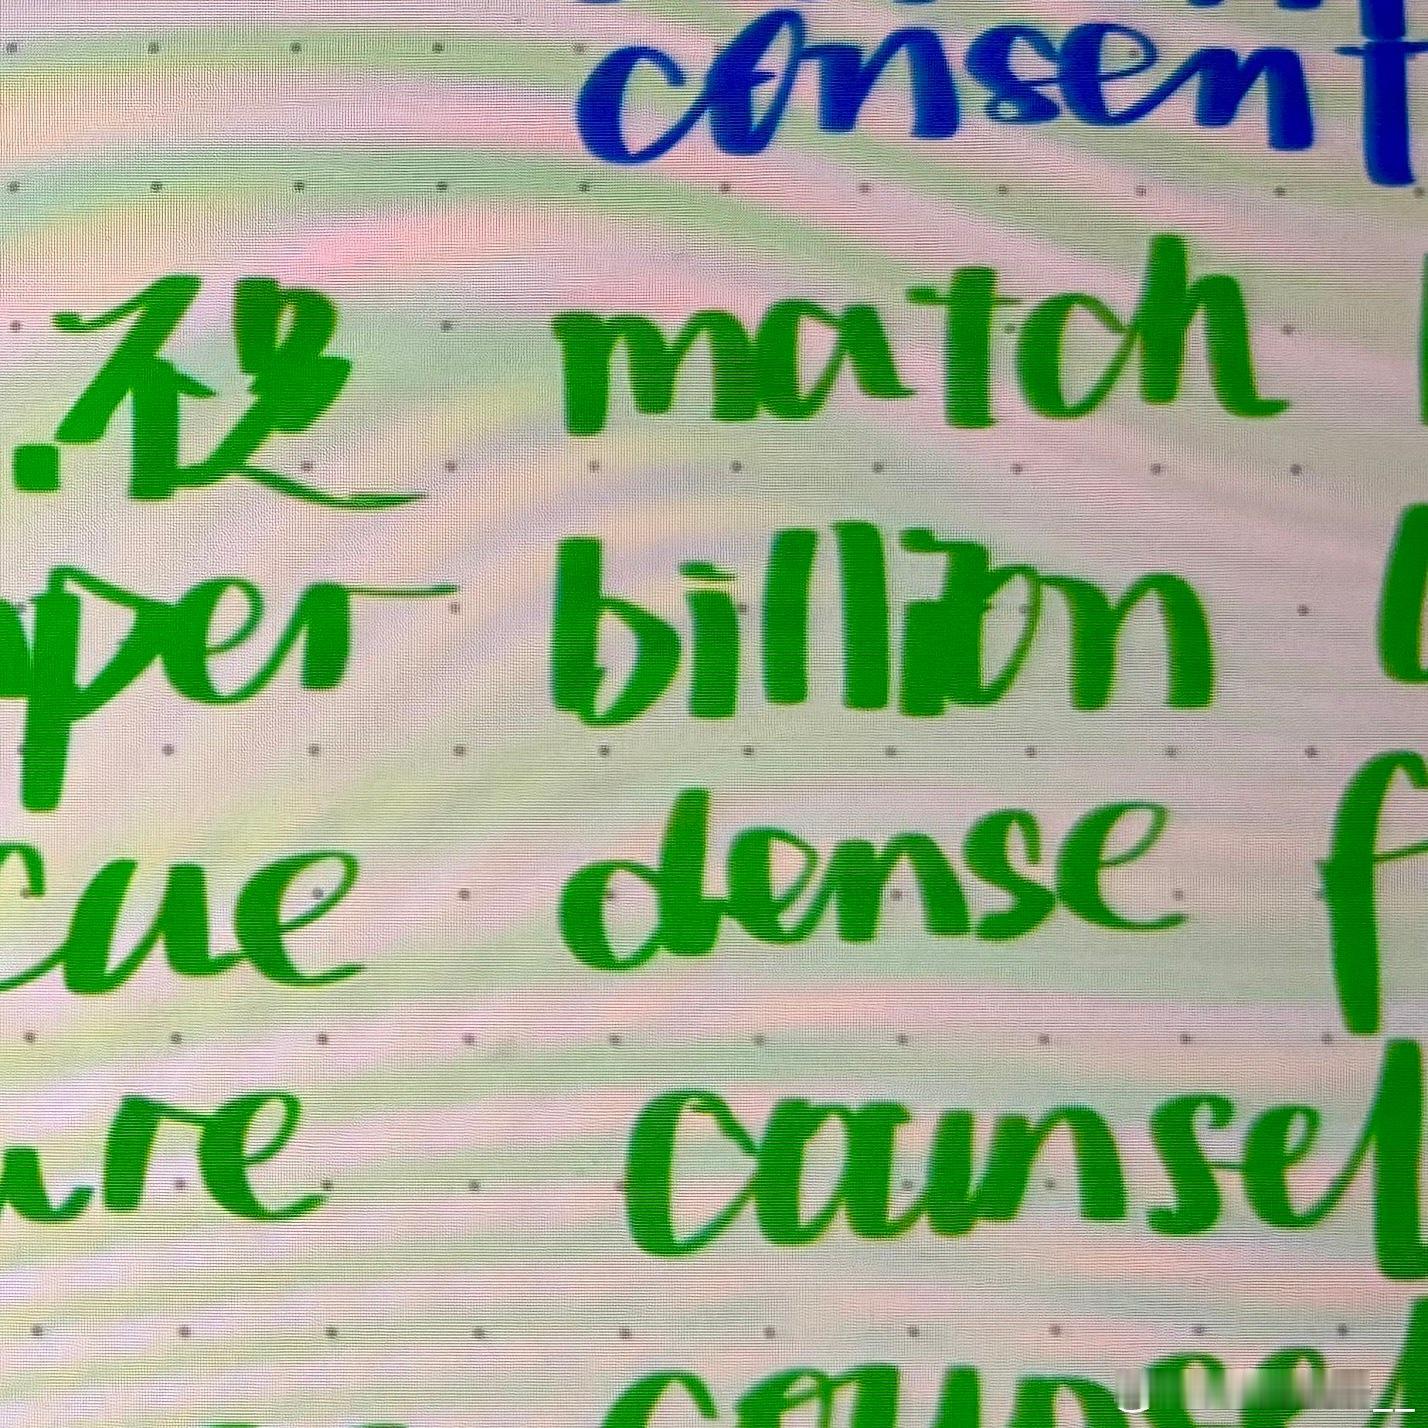 consent
match
per billion
cue dense f
ure counsel
counsel